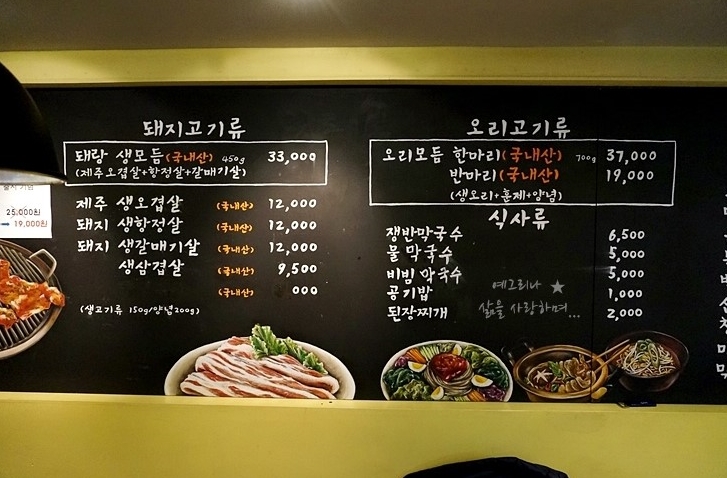 돼지고기류
돼랑 생모듬(국내산) 450g 33,000
(제주오겹살+항정살+갈매기살)
제주 생오겹살 (국내산) 12,000
돼지 생항정살 (국내산) 12,000
돼지 생갈매기살 (국내산) 12,000
생삼겹살 (국내산) 9,500
(국내산) 000
(생고기류 150g/양념200g)
25,000원
19,000원
오리고기류
오리모듬 한마리(국내산) 700g 37,000
반마리(국내산) 19,000
(생오리+훈제+양념)
식사류
쟁반막국수 6,500
물 막국수 5,000
비빔 막국수 5,000
공기밥 1,000
된장찌개 2,000
예그리나 ★
삶을 사랑하며...